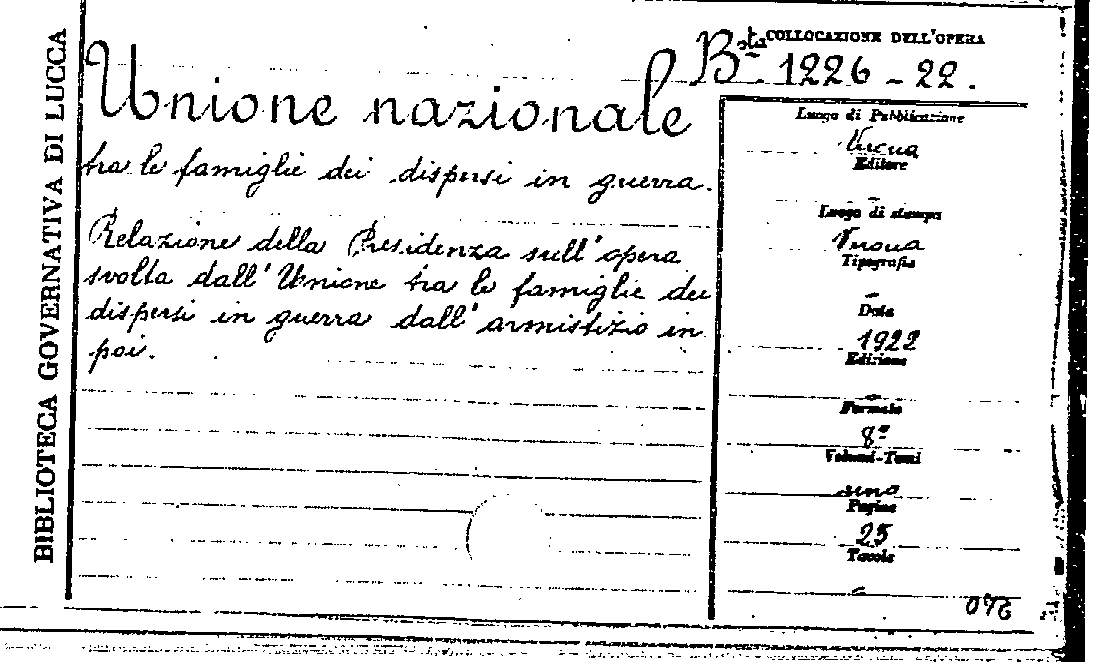 BIBLIOTECA GOVERNATIVA DI LUCCA
COLLOCAZIONE DELL'OPERA
Bsta 1226 - 22.
Unione nazionale
tra le famiglie dei dispersi in guerra.
Relazione della Presidenza sull'opera
svolta dall'Unione tra le famiglie dei
dispersi in guerra dall'armistizio in
poi.
Luogo di Pubblicazione
Editore
Luogo di stampa
Tipografia
Data
1922
Edizione
Formato
8º
Volumi-Tomi
uno
Pagine
25
Tavole